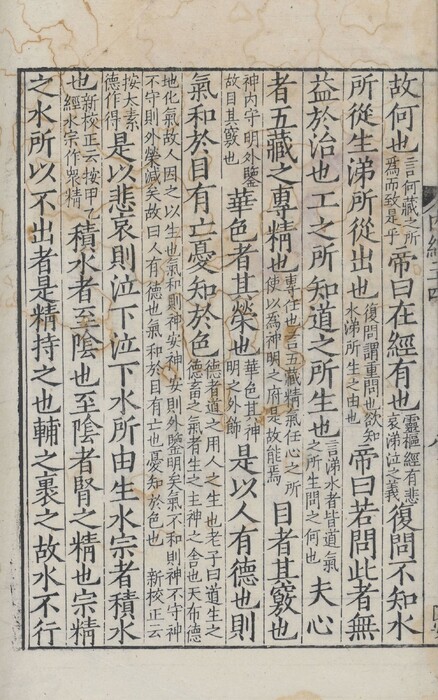 故何也言何藏之所爲而致是乎帝曰在經有也靈樞經有悲哀涕泣之義復問不知水
所從生涕所從出也復問謂重問也欲知水涕所生之由也帝曰若問此者無
益於治也工之所知道之所生也言涕水者皆道氣之所生問之何也夫心
者五藏之專精也專任也言五藏精氣任心之所使以爲神明之府是故能焉目者其竅也
神內守明外鑒故目其竅也華色者其榮也華色其神明之外飾是以人有德也則
氣和於目有亡憂知於色德者道之用人之生也老子曰道生之德畜之氣者生之主神之舍也天布德
地化氣故人因之以生也氣和則神安神安則外鑒明矣氣不和則神不守神不守則外榮減矣故曰人有德也氣和於目有亡也憂知於色也 新校正云
按大素德作得是以悲哀則泣下泣下水所由生水宗者積水
也新校正云按甲乙經水宗作衆精積水者至陰也至陰者腎之精也宗精
之水所以不出者是精持之也輔之裹之故水不行